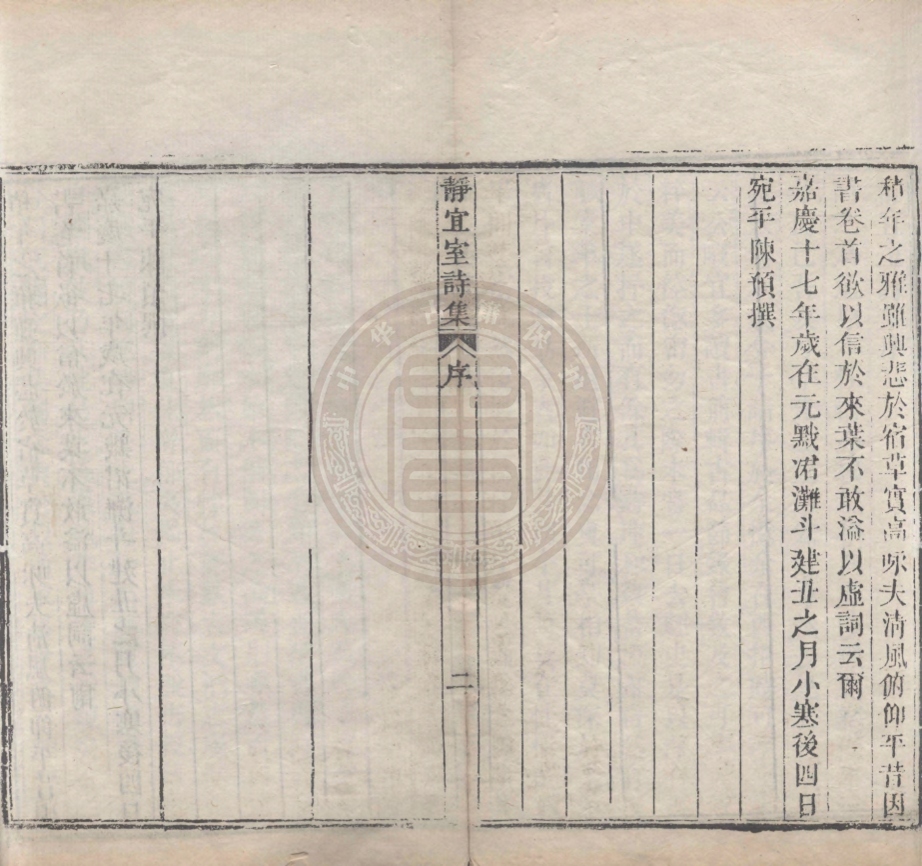 積年之雅雖興悲於宿草實高咏夫清風俯仰平昔因
書卷首欲以信於來葉不敢溢以虛詞云爾
嘉慶十七年歲在元黓涒灘斗建丑之月小寒後四日
宛平陳預撰
靜宜室詩集 序 二